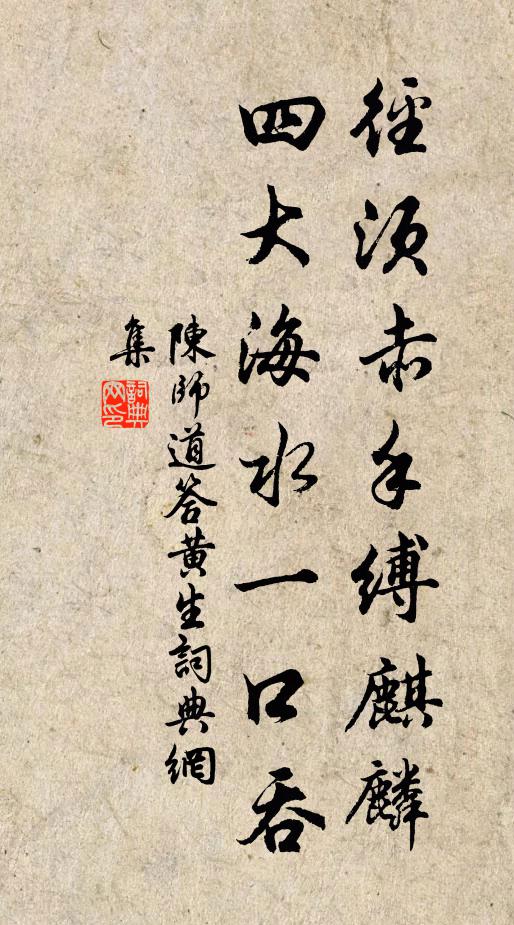 徑須赤手縛麒麟
四大海水一口吞
陳師道答黃生詞典網
集
詞典
网印